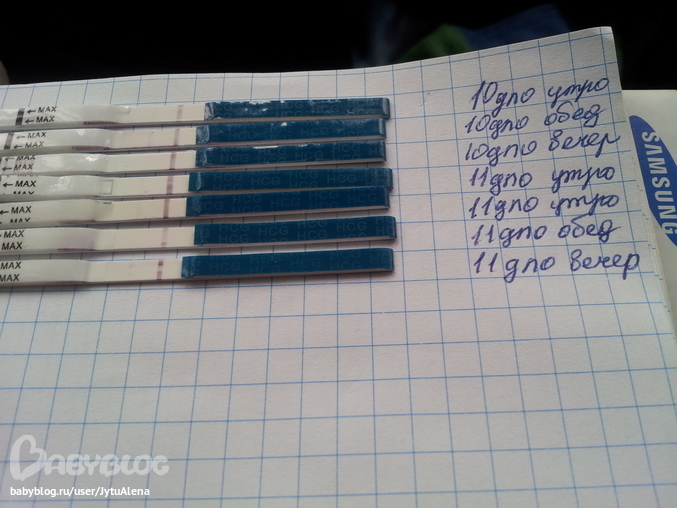 ←MAX
←MAX
←MAX
←MAX
←MAX
←MAX
←MAX
←MAX
MAX
MAX
MAX
MAX
HCG HCG HCG
HCG HCG HCG
HCG HCG HCG HCG
10дпо утро
10дпо обед
10дпо вечер
11дпо утро
11дпо утро
11дпо обед
11дпо вечер
SAMSUNG
BABYBLOG
babyblog.ru/user/JytuAlena